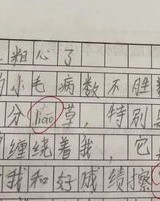 粗心了
小毛病数不胜数
分liáo草，特别是
缠绕着我，它
我和好成绩擦